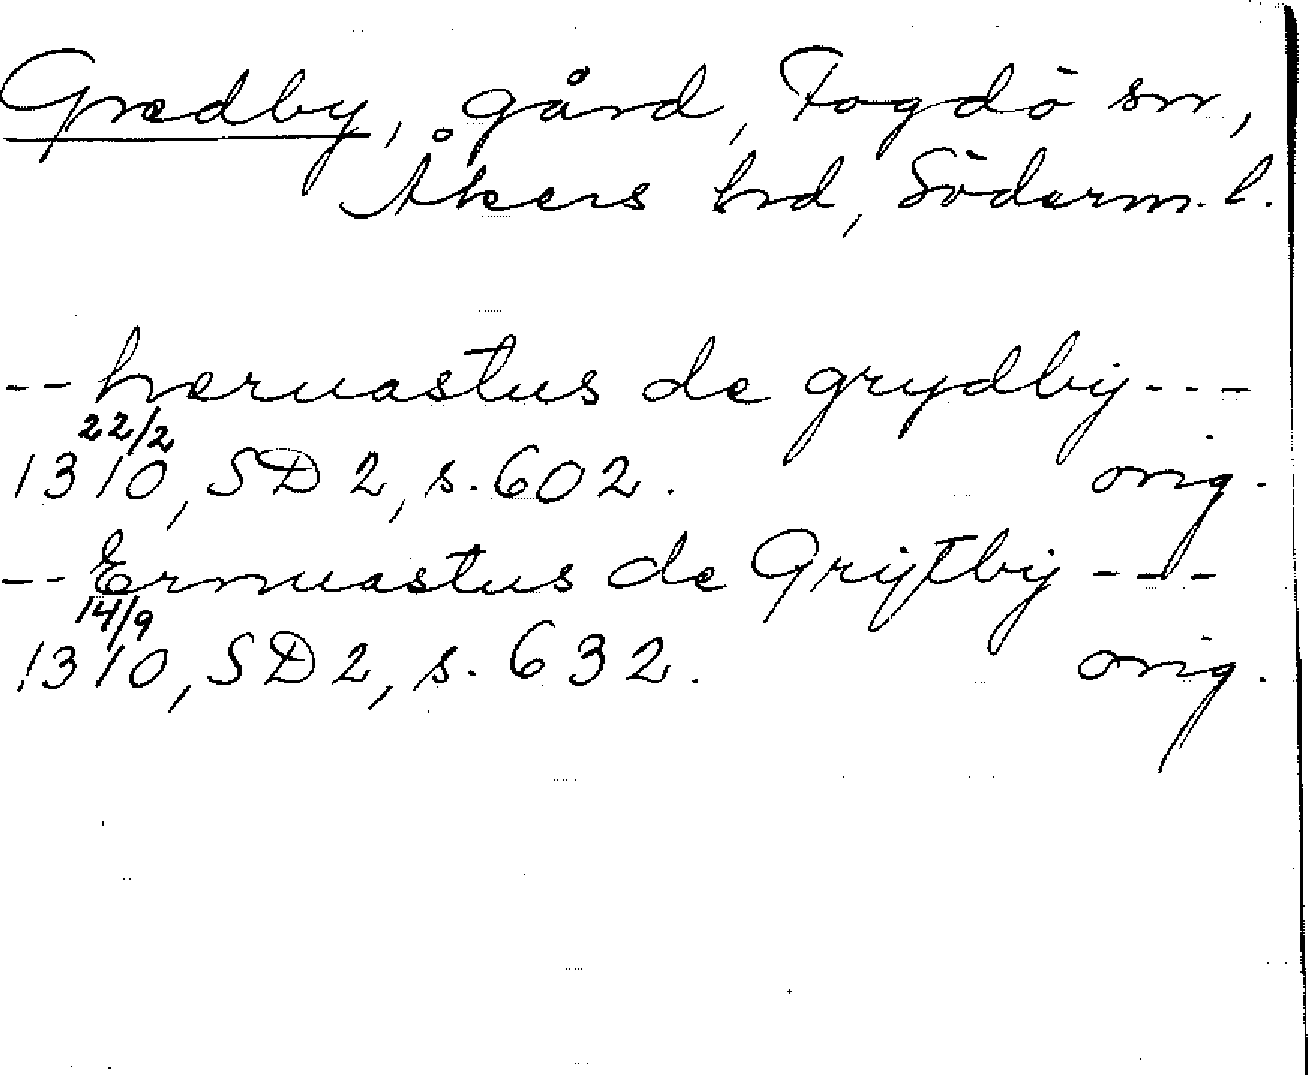 Grædby, gård, Fogdö sn,
Åkers hrd, Söderm. l.
-- hæruastus de grydby ---
22/2
1310, SD 2, s. 602. orig.
-- Ermuastus de Grijtby ---
14/9
1310, SD 2, s. 632. orig.